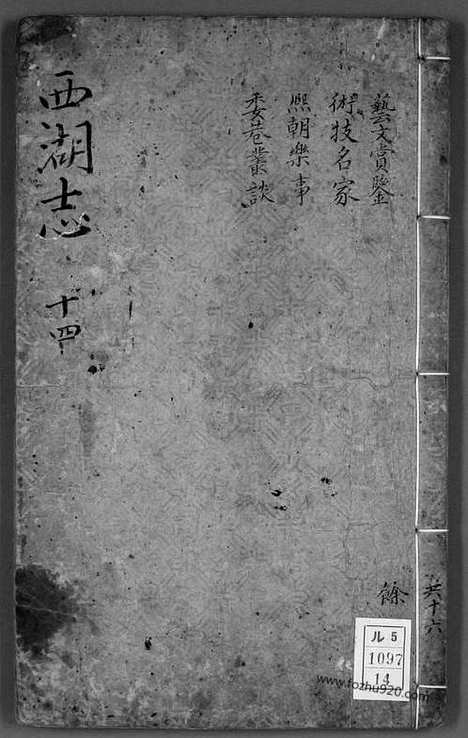 藝文賞鑒
術技名家
熈朝樂事
委巷叢談
西湖志
十四
餘
共十六
ル 5
1097
14
www.fozhu920.com